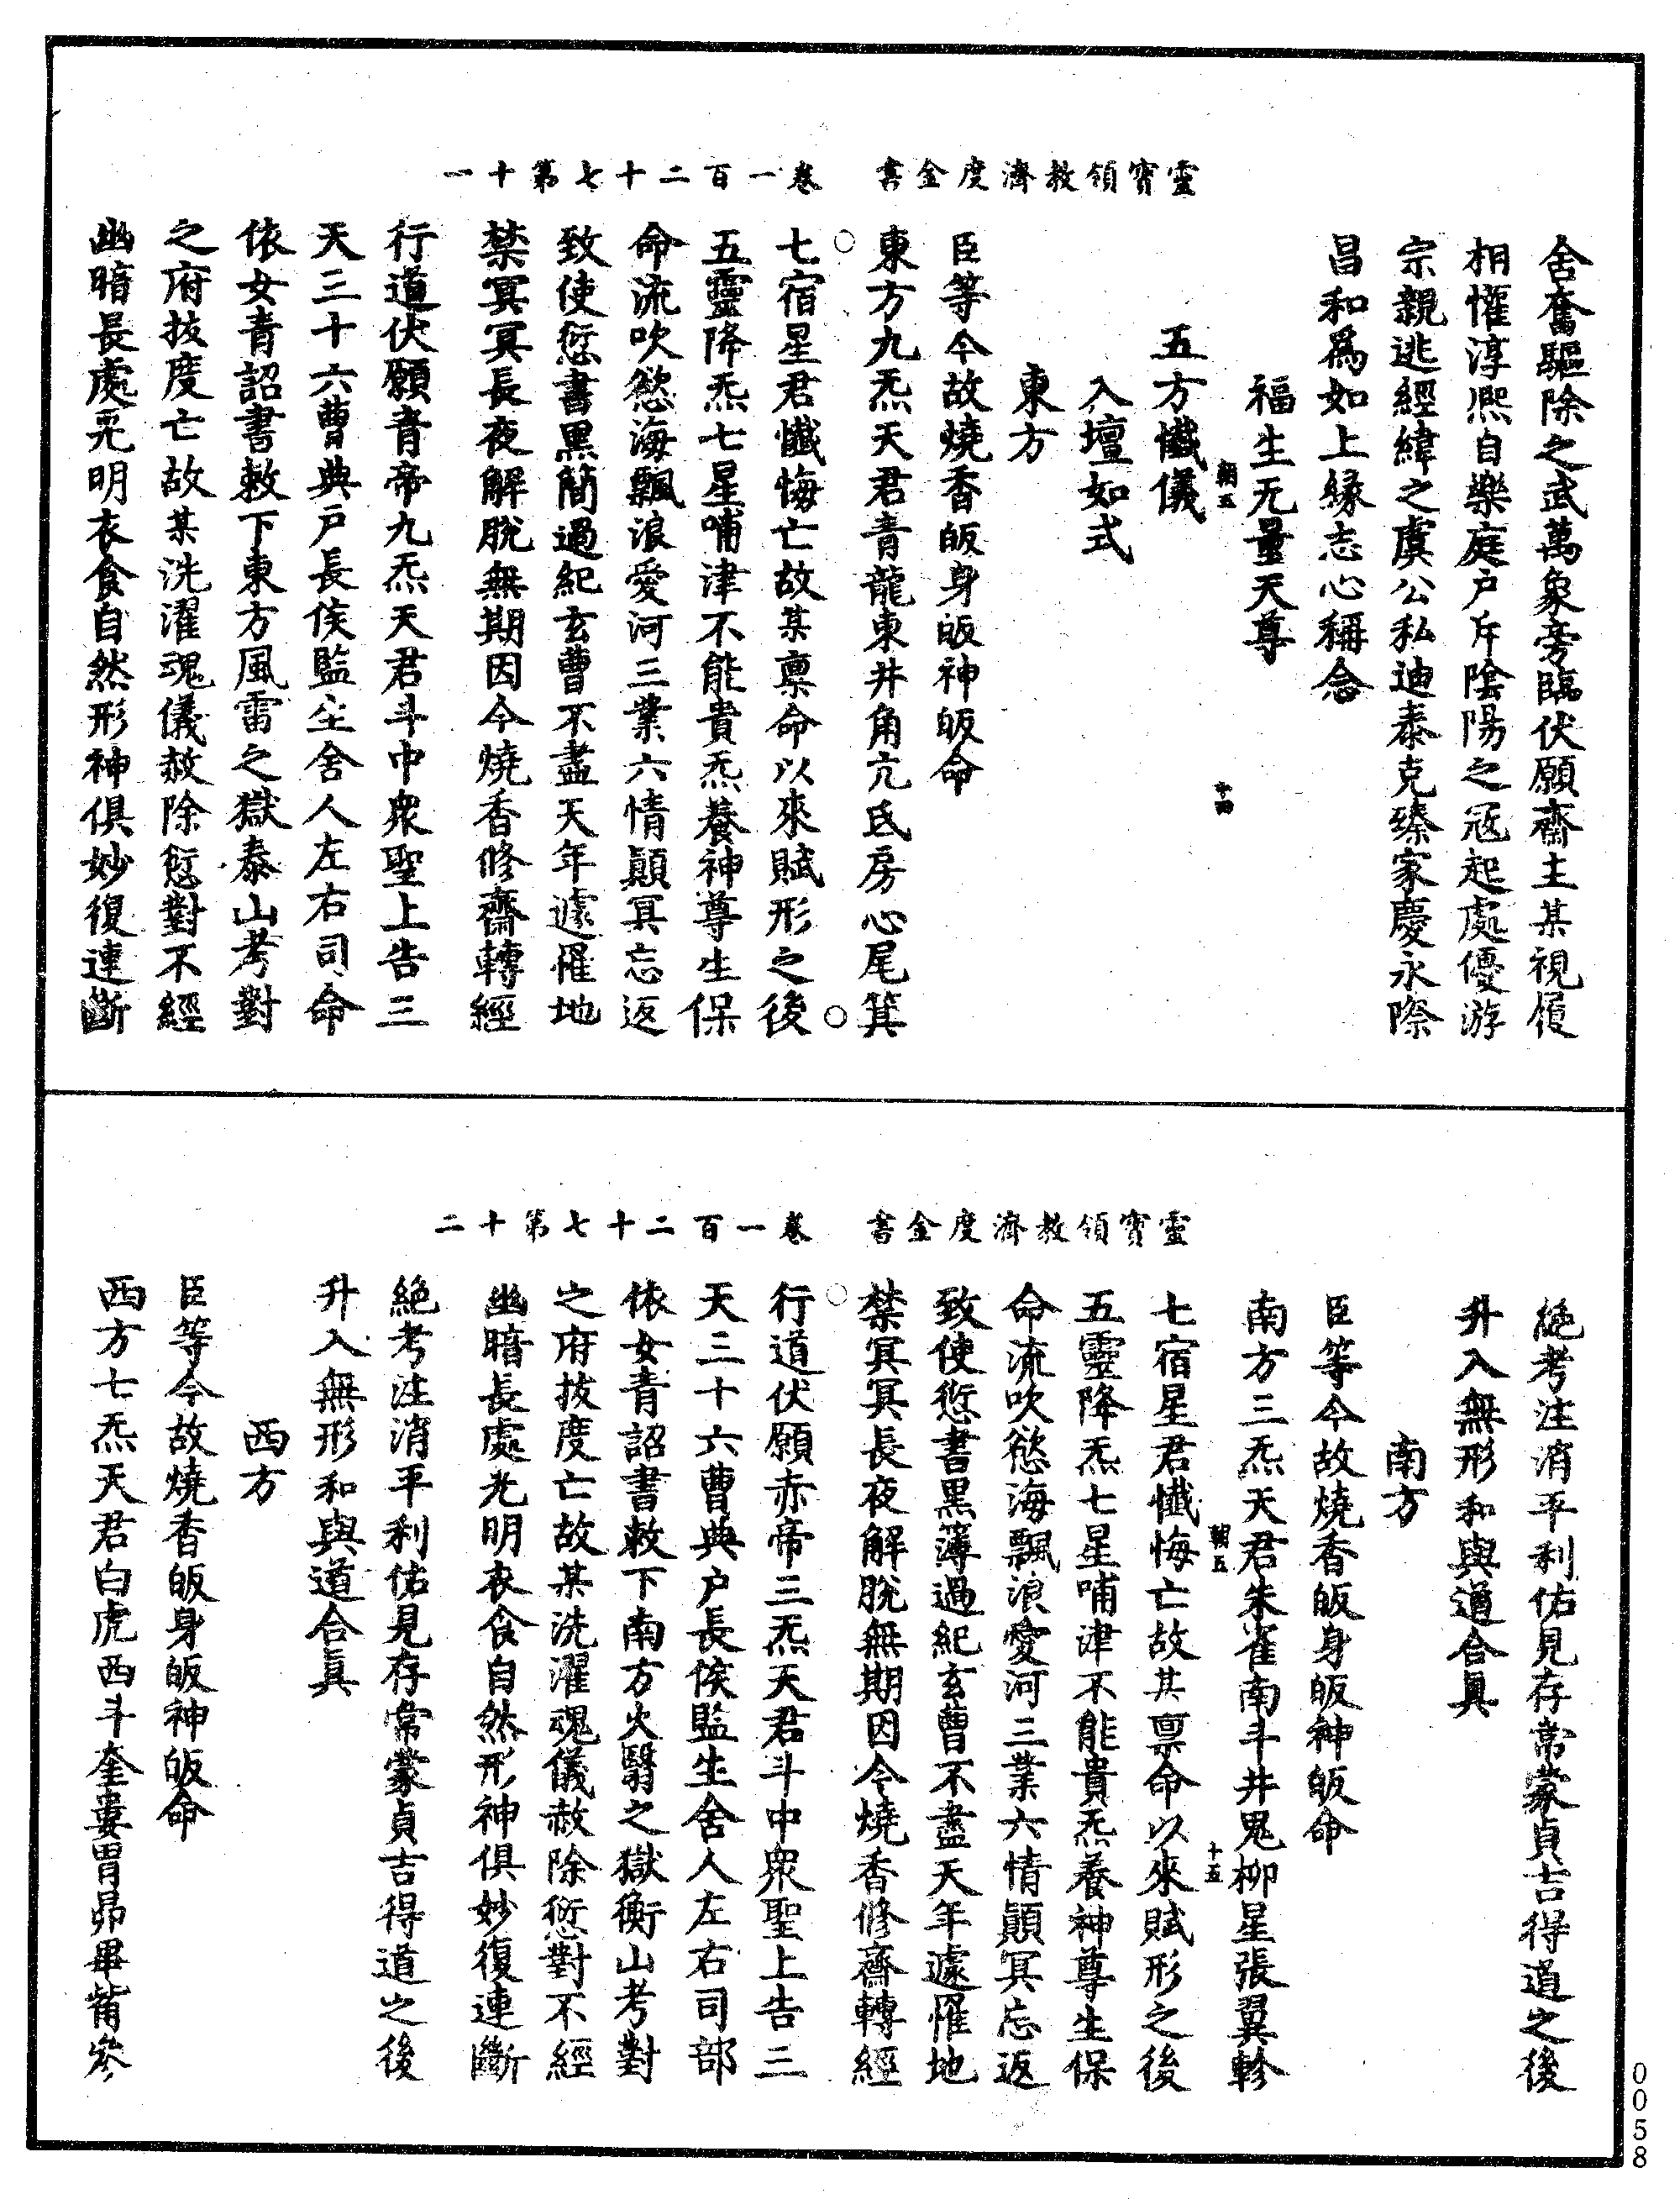 靈寶領教濟度金書　卷一百二十七第十一
舍奮驅除之武萬象旁臨伏願齋主某視履
相懽淳熈自樂庭户斥陰陽之冦起處優游
宗親逃經緯之虞公私迪泰克臻家慶永際
昌和爲如上縁志心稱念
福生无量天尊
朝五　十四
五方懺儀
入壇如式
東方
臣等今故燒香皈身皈神皈命
東方九炁天君青龍東井角亢氐房心尾箕
七宿星君懺悔亡故某禀命以來賦形之後
五靈降炁七星哺津不能貴炁養神尊生保
命流吹慾海飄浪愛河三業六情顛冥忘返
致使愆書黒簡過紀玄曹不盡天年遽罹地
禁冥冥長夜解脱無期因今燒香修齋轉經
行道伏願青帝九炁天君斗中衆聖上告三
天三十六曹典户長候監生舍人左右司命
依女青詔書敕下東方風雷之獄泰山考對
之府拔度亡故某洗濯魂儀赦除愆對不經
幽暗長處光明衣食自然形神俱妙復連斷
靈寶領教濟度金書　卷一百二十七第十二
絕考注消平利佑見存常蒙貞吉得道之後
升入無形和與道合真
南方
臣等今故燒香皈身皈神皈命
南方三炁天君朱雀南斗井鬼柳星張翼軫
朝五　十五
七宿星君懺悔亡故某禀命以來賦形之後
五靈降炁七星哺津不能貴炁養神尊生保
命流吹慾海飄浪愛河三業六情顛冥忘返
致使愆書黒簿過紀玄曹不盡天年遽罹地
禁冥冥長夜解脱無期因今燒香修齋轉經
行道伏願赤帝三炁天君斗中衆聖上告三
天三十六曹典户長候監生舍人左右司部
依女青詔書敕下南方火翳之獄衡山考對
之府拔度亡故某洗濯魂儀赦除愆對不經
幽暗長處光明衣食自然形神俱妙復連斷
絕考注消平利佑見存常蒙貞吉得道之後
升入無形和與道合眞
西方
臣等今故燒香皈身皈神皈命
西方七炁天君白虎西斗奎婁胃昴畢觜參
0058